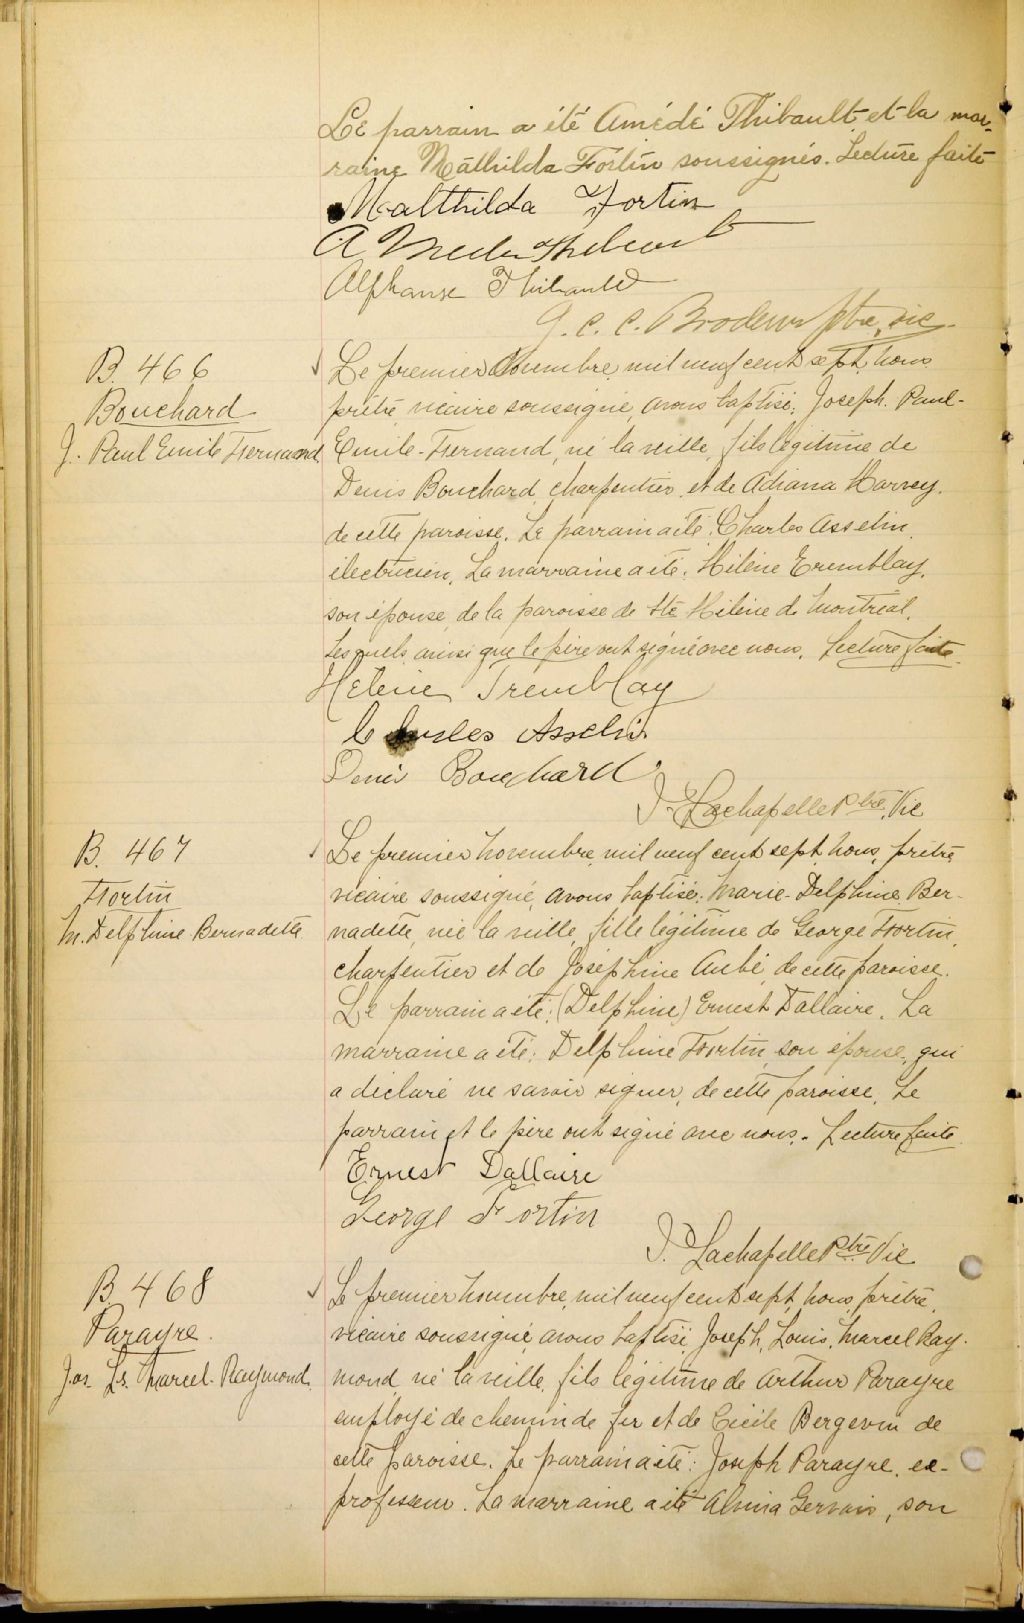 Le parrain a été Amédé Thibault et la mar-
raine Mathilda Fortin soussignés. Lecture faite
Malthilda Fortin
A Meder Thibeault
Alphonse Thibault
G. C. C. Brodeur Ptre, vic.
B. 466
Bouchard
J. Paul Emile Fernand.
Le premier Novembre mil neuf cent sept, nous
prêtre vicaire soussigné, avons baptisé: Joseph-Paul-
Emile-Fernand, né la veille, fils légitime de
Denis Bouchard, charpentier, et de Adiana Harvey,
de cette paroisse. Le parrain a été: Charles Asselin,
électricien, La marraine a été: Hélène Tremblay,
son épouse, de la paroisse de Ste Hélène de Montréal,
Lesquels ainsi que le père ont signé avec nous. Lecture faite.
Helène Tremblay
Charles Asselin
Denis Bouchard
J. Lachapelle Ptre, Vic
B. 467
Fortin
M. Delphine Bernadette
Le premier Novembre, mil neuf cent sept, nous, prêtre
vicaire soussigné, avons baptisé: Marie-Delphine Ber-
nadette, née la veille, fille légitime de George Fortin,
charpentier et de Joséphine Aubé, de cette paroisse.
Le parrain a été: (Delphine) Ernest Dallaire, La
marraine a été: Delphine Fortin, son épouse, qui
a déclaré ne savoir signer, de cette paroisse. Le
parrain et le père ont signé avec nous. Lecture faite
Ernest Dallaire
George Fortin
J. Lachapelle Ptre Vic
B. 468
Parayre.
Jos. Ls. Marcel. Raymond.
Le premier Novembre, mil neuf cent sept, nous, prêtre,
vicaire soussigné, avons baptisé, Joseph, Louis, Marcel Ray-
mond, né la veille, fils légitime de Arthur Parayre
employé de chemin de fer et de Cécile Bergevin de
cette paroisse. Le parrain a été: Joseph Parayre, ex-
professeur. La marraine a été Almia Gervais, son